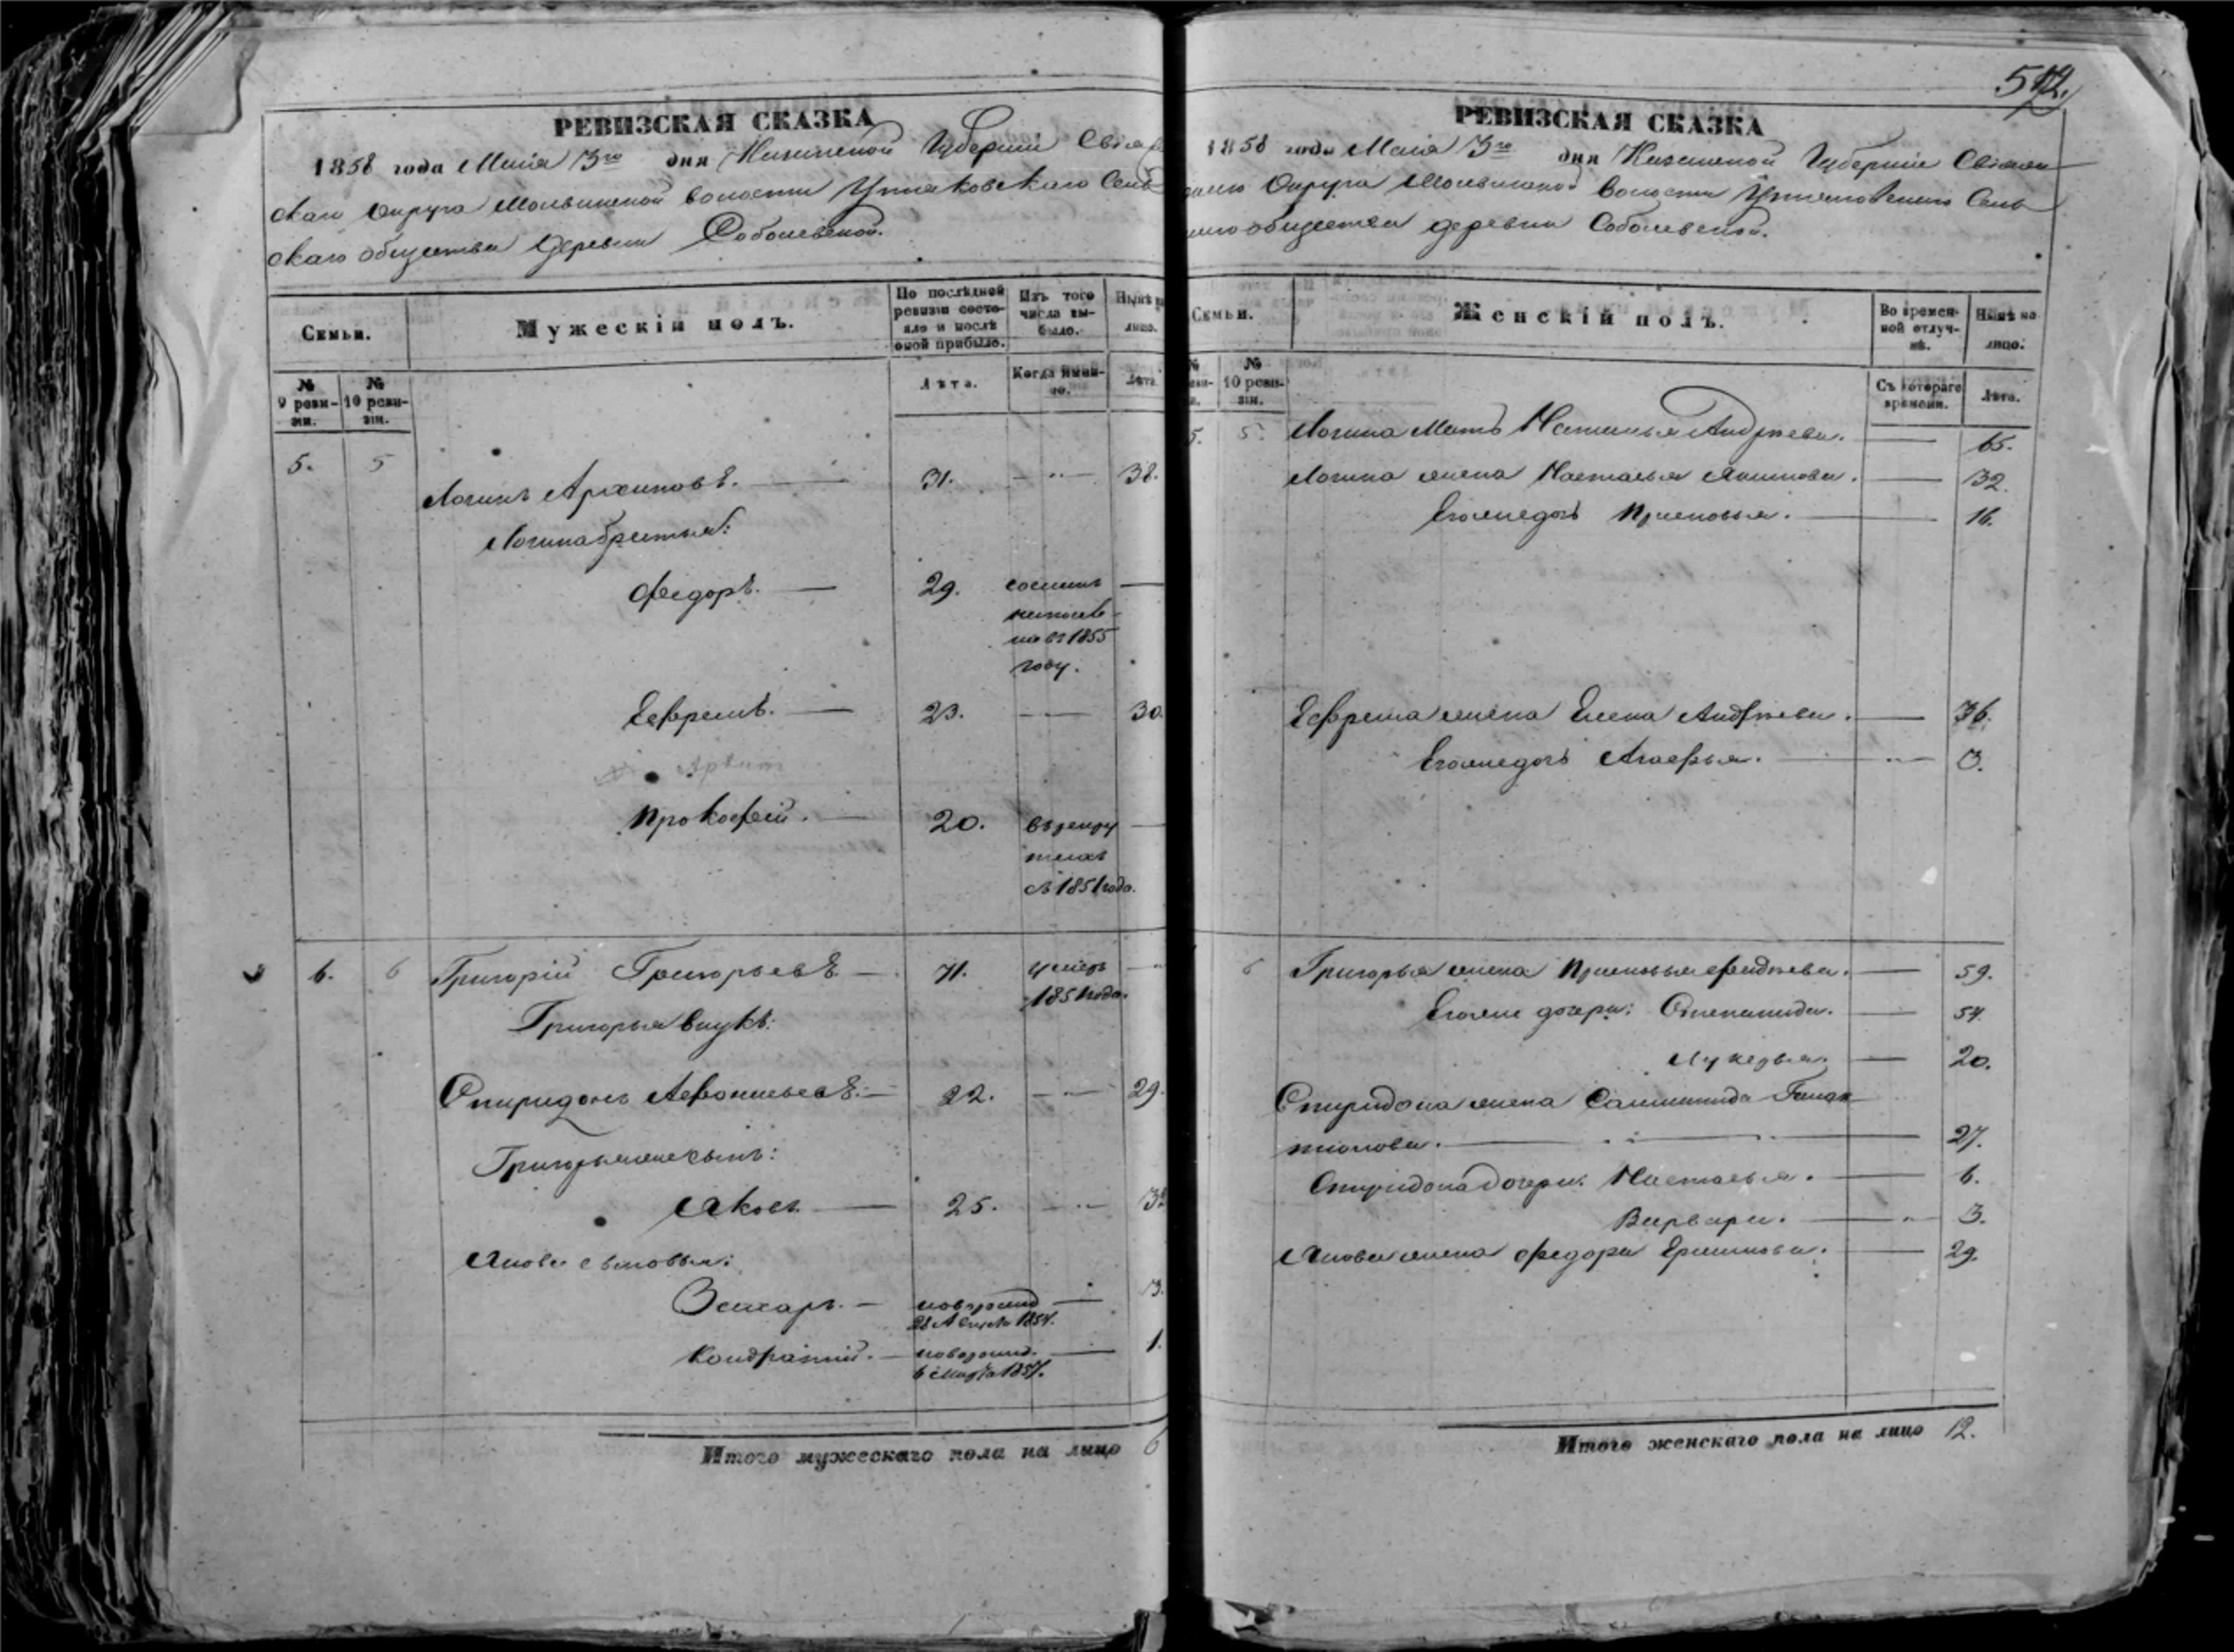 РЕВИЗСКАЯ СКАЗКА
1858 года Маія 3го дня Казанской Губерніи Свіяж
скаго Округа Молвинской волости Утяковскаго Сель
скаго общества деревни Соболевской.
Семьи.
Мужескій полъ.
По послѣдней ревизіи состо-
яло и послѣ оной прибыло.
Изъ того числа вы-
было.
Нынѣ на лицо.
№ 9 реви-
зіи.
№ 10 реви-
зіи.
Лѣта.
Когда имен-
но.
Лѣта.
5. 5 Логинъ Архиповъ. 31. 38.
Логина братья:
Федоръ. 29.
на въ 1855
году.
Ефремъ. 23. 30.
Прокофей. 20. въ рекру
тахъ
съ 1851 года.
6. 6 Григорій Григорьевъ 71. умеръ
1851 года.
Григорья внукъ:
Спиридонъ Афонасьевъ. 22. 29.
сынъ:
Яковъ 25. 32
Якова сыновья:
Захаръ. новорожд 3.
1854.
Кондратій. новорожд. 1.
6 Марта 1857.
Итого мужескаго пола на лицо 6
512.
РЕВИЗСКАЯ СКАЗКА
1858 года Маія 3го дня Казанской Губерніи Свіяж
скаго Округа Молвинской волости Утяковскаго Сель
скаго общества деревни Соболевской.
Семьи.
Женскій полъ.
Во времен-
ной отлуч-
кѣ.
Нынѣ на лицо.
№ 10 реви-
зіи.
Съ котораго времени.
Лѣта.
5. 5. Логина Мать Наталья Андреева. 65.
Логина жена Настасья Якимова. 32.
Его же дочь Прасковья. 16.
Ефрема жена Елена Андреева. 36.
Его же дочь Агафья. 3.
6 Григорья жена Прасковья Фадѣева. 59.
Его же дочери: Степанида. 54.
Лукерья. 20.
Спиридона жена Галак
тіонова. 27.
Спиридона дочери: Настасья. 6.
Варвара. 3.
Якова жена Федора Ермилова. 29.
Итого женскаго пола на лицо 12.